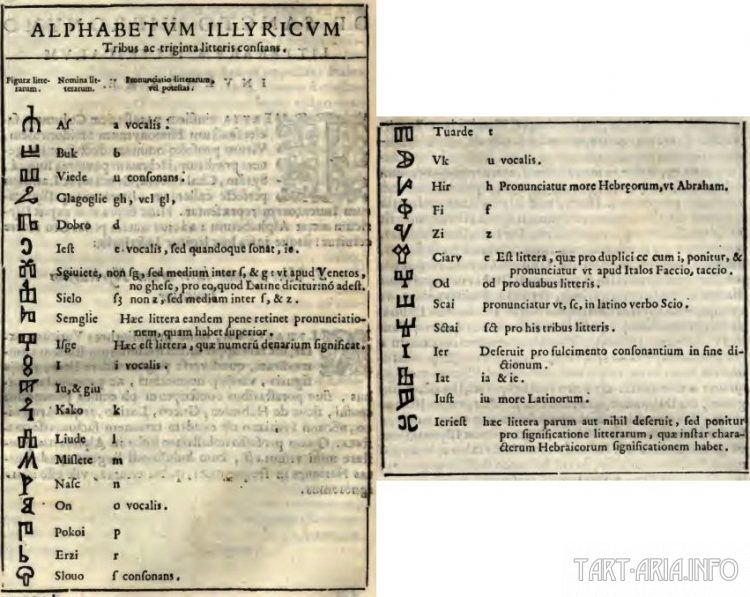 ALPHABETVM ILLYRICVM
Tribus ac triginta litteris conſtans.
Figuræ litte- Nomina lit- Pronunciatio litterarum,
rarum. terarum. vel poteſtas.
Aſ a vocalis.
Buk b
Viede u conſonans.
Glagoglie gh, vel gl,
Dobro d
Ieſt e vocalis, ſed quandoque ſonat, ie.
Sgiuiete, non ſg, ſed medium inter ſ, & g: vt apud Venetos,
no gheſe, pro eo, quod Latine dicitur: nõ adeſt.
Sielo ſʒ non z, ſed medium inter ſ, & z.
Semglie Hæc littera eandem pene retinet pronunciatio-
nem, quam habet ſuperior.
Iſge Hæc eſt littera, quæ numerũ denarium ſignificat.
I i vocalis.
Iu, & giu
Kako k
Liude l
Miſlete m
Naſc n
On o vocalis.
Pokoi p
Erzi r
Slouo ſ conſonans.
Tuarde t
Vk u vocalis.
Hir h Pronunciatur more Hebręorum, vt Abraham.
Fi f
Zi z
Ciarv c Eſt littera, quæ pro duplici cc cum i, ponitur, &
pronunciatur vt apud Italos Faccio, taccio.
Od od pro duabus litteris.
Scai pronunciatur vt, ſc, in latino verbo Scio.
Sctai ſct pro his tribus litteris.
Ier Deſeruit pro fulcimento conſonantium in fine di-
ctionum.
Iat ia & ie.
Iuſt iu more Latinorum.
Ierieſt hæc littera parum aut nihil deſeruit, ſed ponitur
pro ſignificatione litterarum, quæ inſtar chara-
cterum Hebraicorum ſignificationem habet.
TART-ARIA.INFO